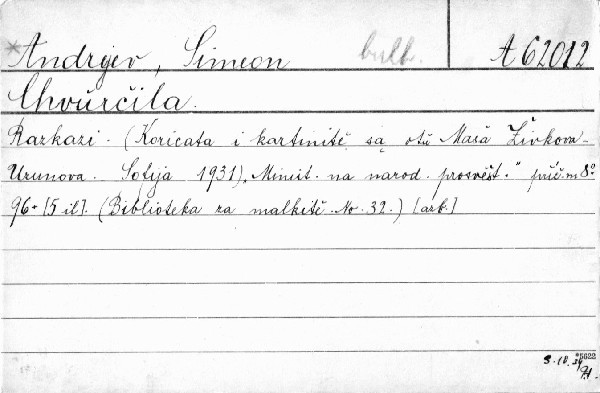 *Andrjev, Simeon bulh. A 62012
Chvŭrčila.
Razkazi. (Koricata i kartinitě są otŭ Maša Živkova-
Uzunova. Sofija 1931) „Minist. na narod. prosvěšt." 8°
96+[5 il]. (Biblioteka za malkitě No. 32.)
*5622
3.10.34